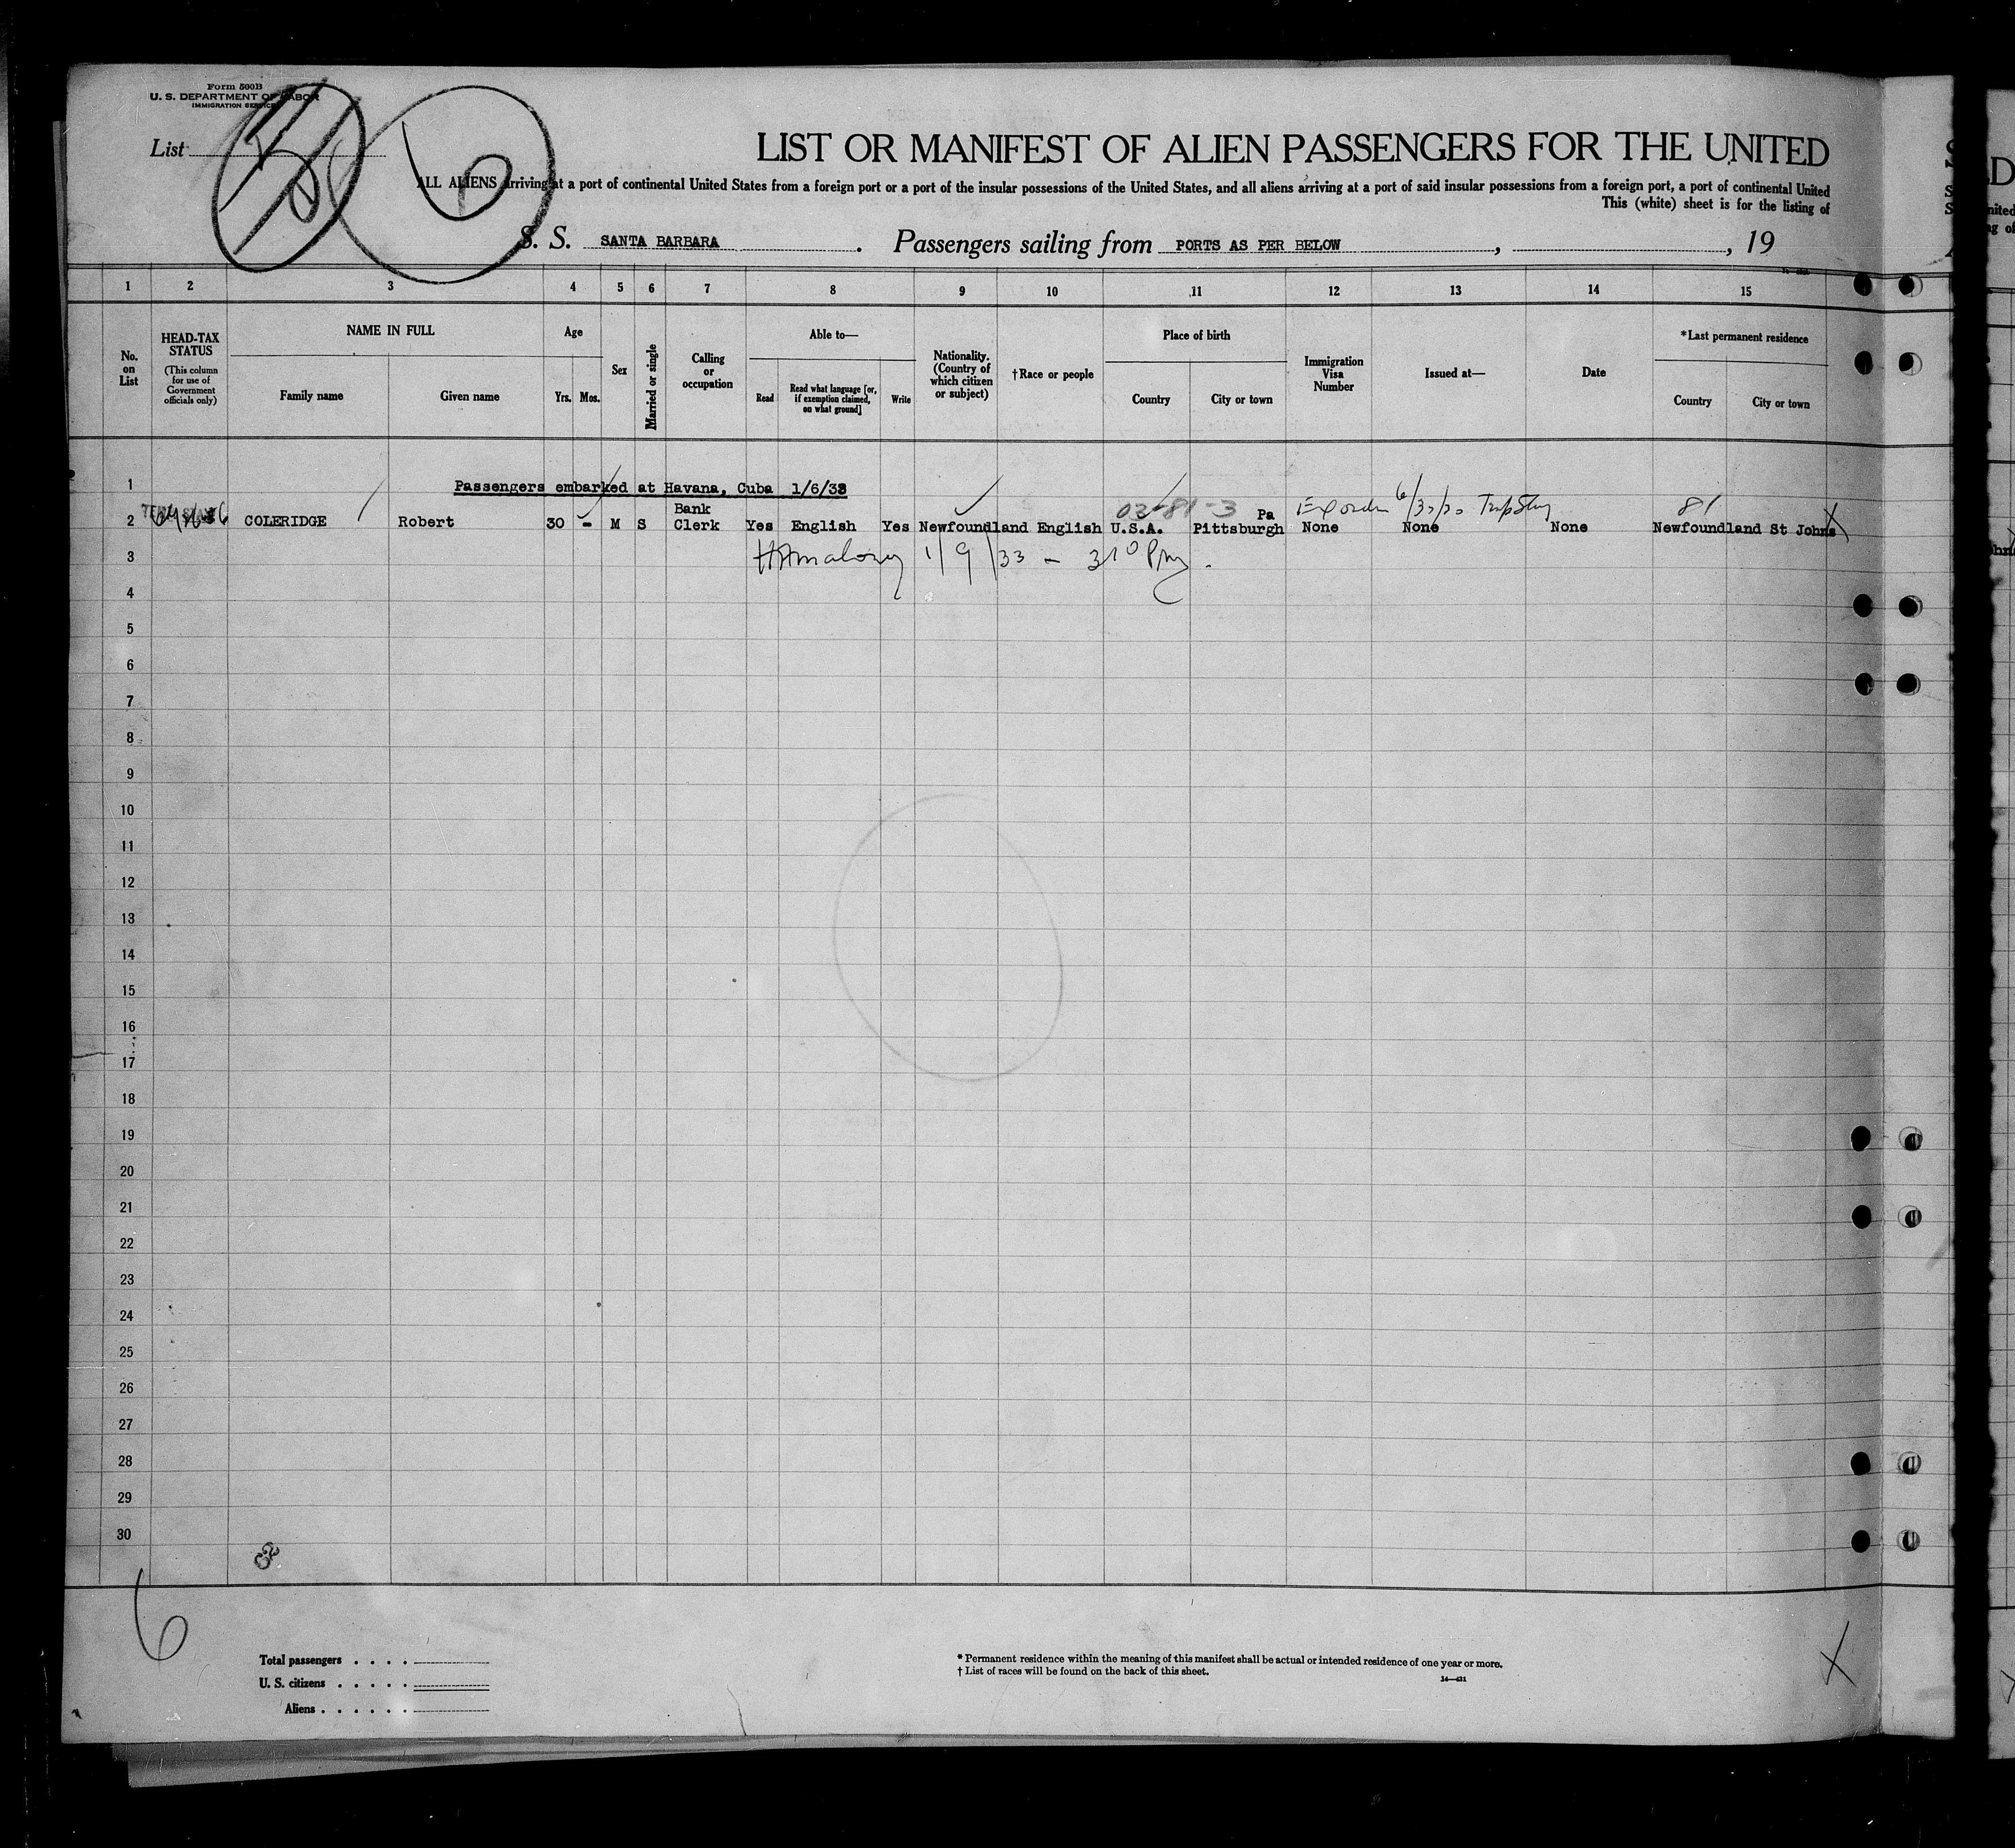 Form 500B
U. S. DEPARTMENT OF LABOR
IMMIGRATION SERVICE
List
5
6
LIST OR MANIFEST OF ALIEN PASSENGERS FOR THE UNITED
ALL ALIENS arriving at a port of continental United States from a foreign port or a port of the insular possessions of the United States, and all aliens arriving at a port of said insular possessions from a foreign port, a port of continental United
This (white) sheet is for the listing of
S. S. SANTA BARBARA. Passengers sailing from PORTS AS PER BELOW, , 19
1 2 3 4 5 6 7 8 9 10 11 12 13 14 15
No. on List
HEAD-TAX STATUS
(This column for use of Government officials only)
NAME IN FULL
Family name
Given name
Age
Yrs. Mos.
Sex
Married or single
Calling or occupation
Able to—
Read
Read what language [or, if exemption claimed, on what ground]
Write
Nationality. (Country of which citizen or subject)
†Race or people
Place of birth
Country
City or town
Immigration Visa Number
Issued at—
Date
*Last permanent residence
Country
City or town
1 Passengers embarked at Havana, Cuba 1/6/33
03-81-3
81
2 COLERIDGE Robert 30 - M S Bank Clerk Yes English Yes Newfoundland English U.S.A. Pittsburgh Pa None None None Newfoundland St Johns
3 1/9/33 - 310 Pm.
4
5
6
7
8
9
10
11
12
13
14
15
16
17
18
19
20
21
22
23
24
25
26
27
28
29
30
6
Total passengers . . . .
U. S. citizens . . . . .
Aliens . . . . . .
* Permanent residence within the meaning of this manifest shall be actual or intended residence of one year or more.
† List of races will be found on the back of this sheet.